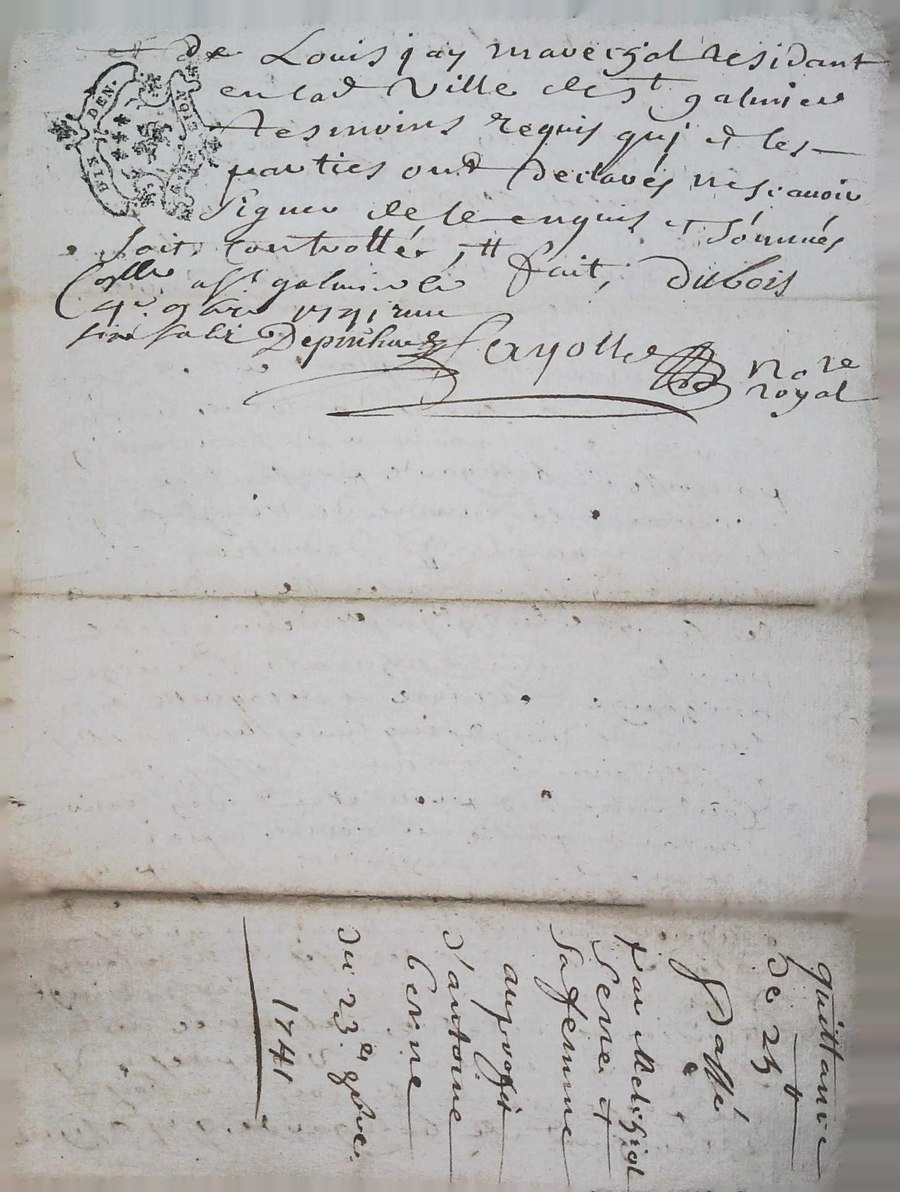 de Louis jay marechal residant
en lad ville de st galmier
tesmoins requis quj et les
parties ont declarés ne scavoir
signer de ce enquis et sommés
soit controllér, fait, dubois
Collé a st galmier le
9bre 1741
Fayolle nore
royal
quittance
de 25 tt
Passé
par
Serre et
sa femme
au profit
d'antoine
Cerne
du 23e 9bre
1741